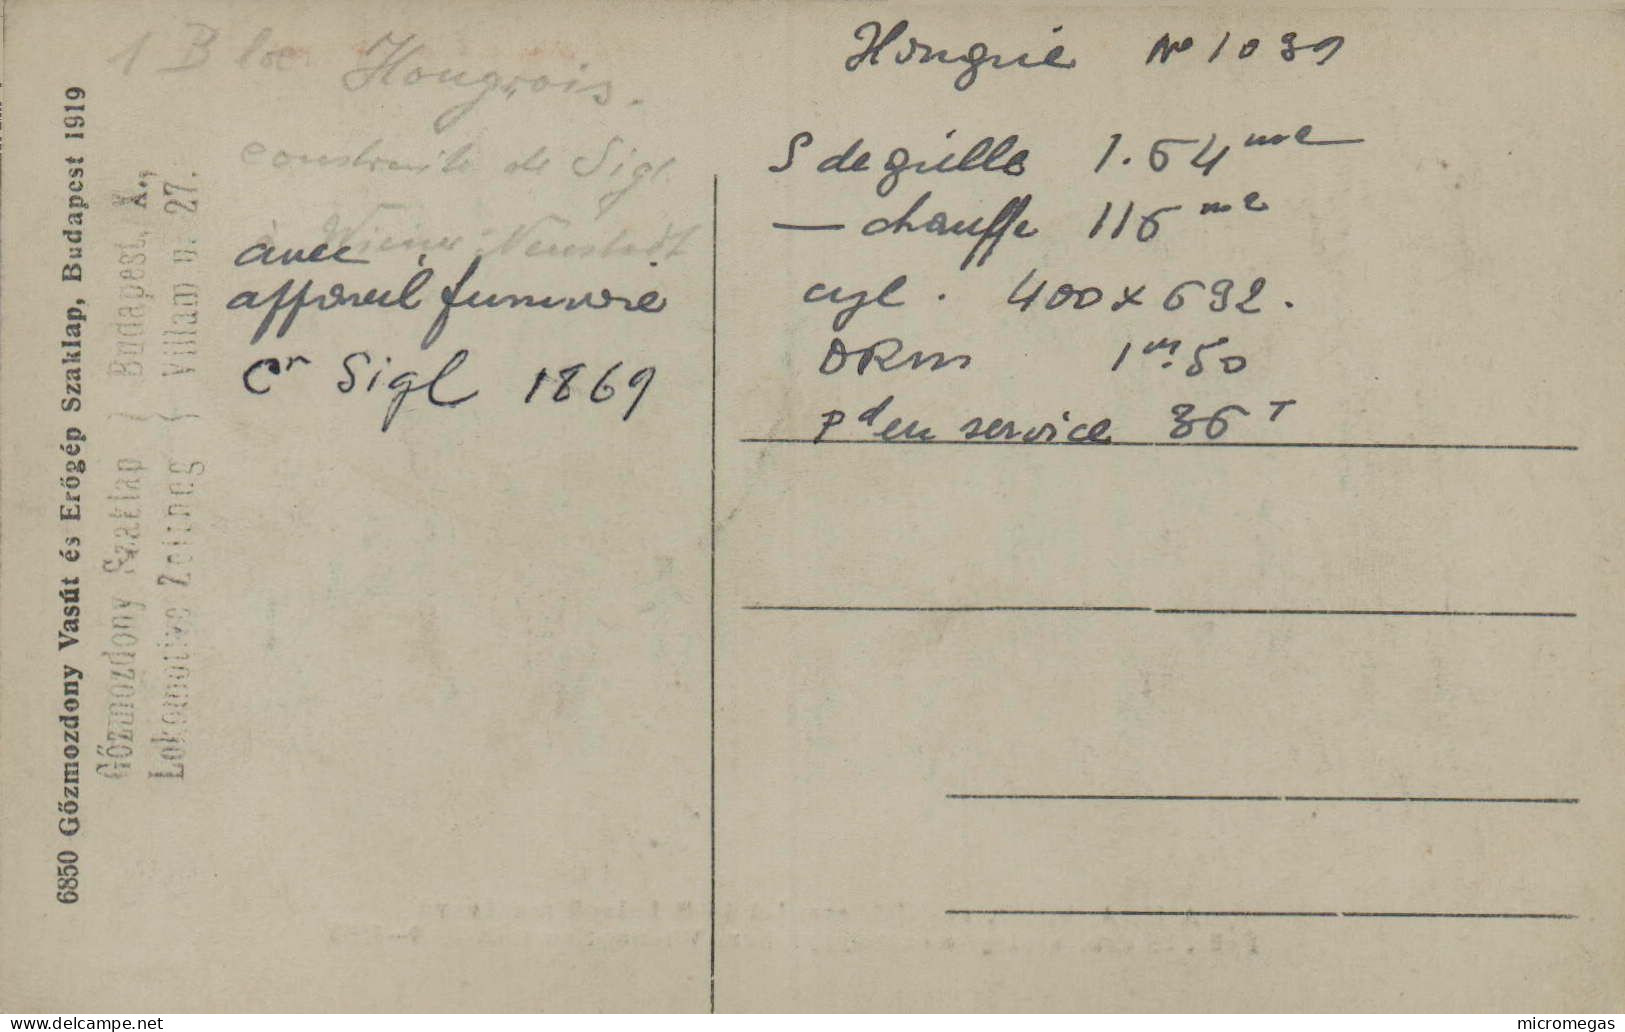 6850 Gőzmozdony Vasút és Erőgép Szaklap, Budapest 1919
Gőzmozdony Szaklap } Budapest, X.,
Lokomotive Zeitung { Villam u. 27.
1 B loc Hongrois.
construite de Sigl
à Wiener Neustadt
avec
appareil fumivore
Cr Sigl 1869
Hongrie No 1031
S de grille 1.64 m2
— chauffe 116 m2
cyl. 400 x 632.
DRm 1m.50
Pd en service 36 T
micromegas